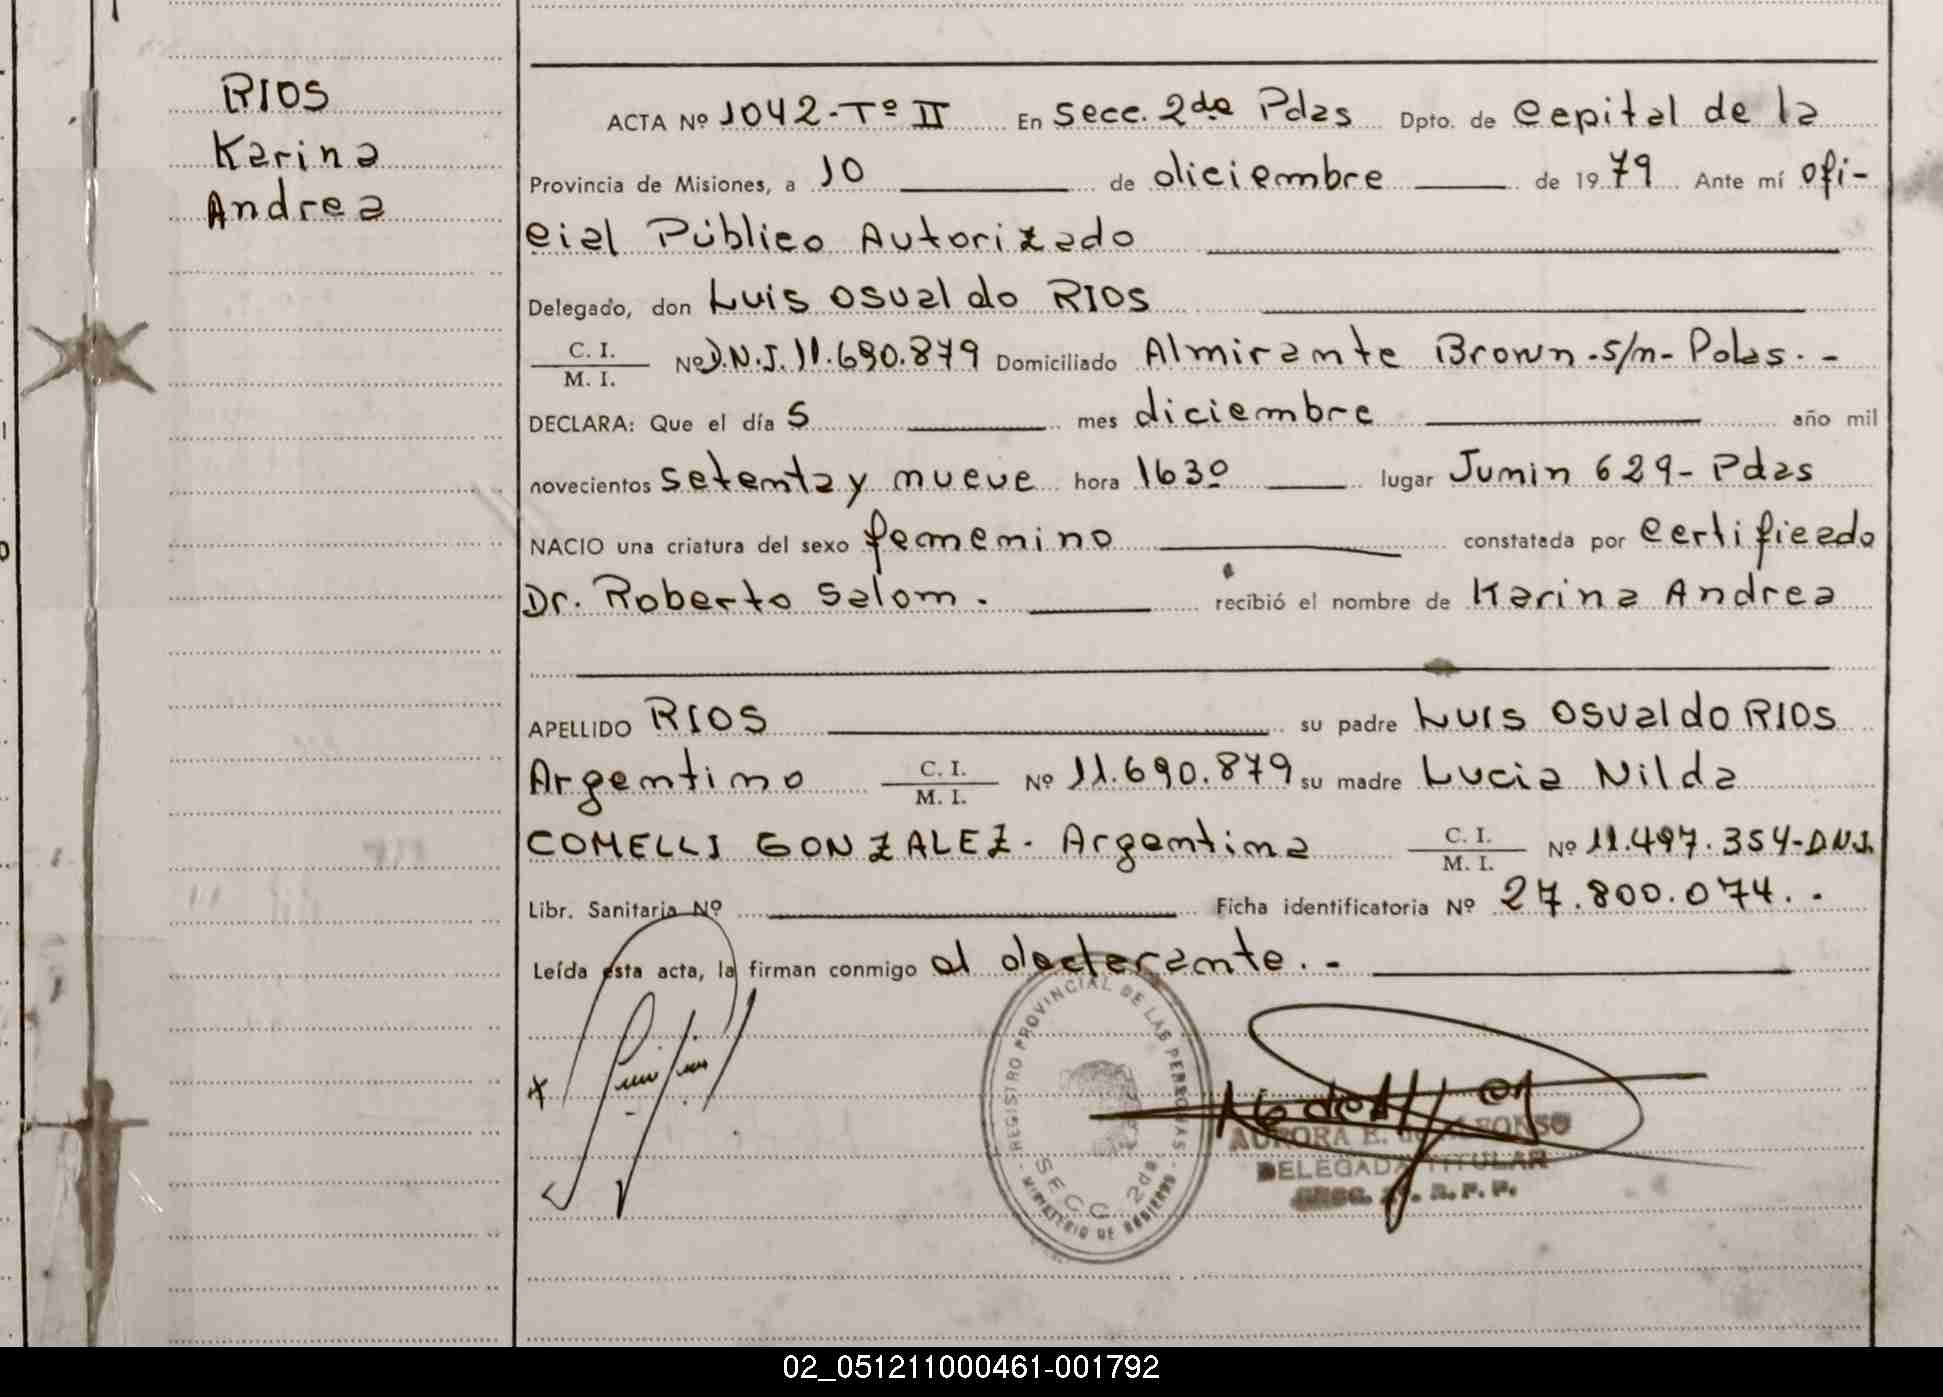 RIOS
Karina
Andrea
ACTA Nº 1042-Tº II En Secc. 2da Pdas Dpto. de Capital de la
Provincia de Misiones, a 10 de diciembre de 1979 Ante mí ofi-
cial Público Autorizado
Delegado, don Luis Osvaldo RIOS
C. I.
M. I. Nº D.N.I. 11.690.879 Domiciliado Almirante Brown - s/n - Pdas. -
DECLARA: Que el día 5 mes diciembre año mil
novecientos setenta y nueve hora 1630 lugar Junin 629 - Pdas
NACIO una criatura del sexo femenino constatada por Certificado
Dr. Roberto Salom. recibió el nombre de Karina Andrea
APELLIDO RIOS su padre Luis Osvaldo RIOS
Argentino C. I.
M. I. Nº 11.690.879 su madre Lucia Nilda
COMELLI GONZALEZ - Argentina C. I.
M. I. Nº 11.497.354 - D.N.I.
Libr. Sanitaria Nº Ficha identificatoria Nº 27.800.074. -
Leída esta acta, la firman conmigo el declarante. -
REGISTRO PROVINCIAL DE LAS PERSONAS
SECC. 2da.
MINISTERIO DE GOBIERNO
AURORA E. de ALFONSO
DELEGADA TITULAR
R. P. P.
02_051211000461-001792